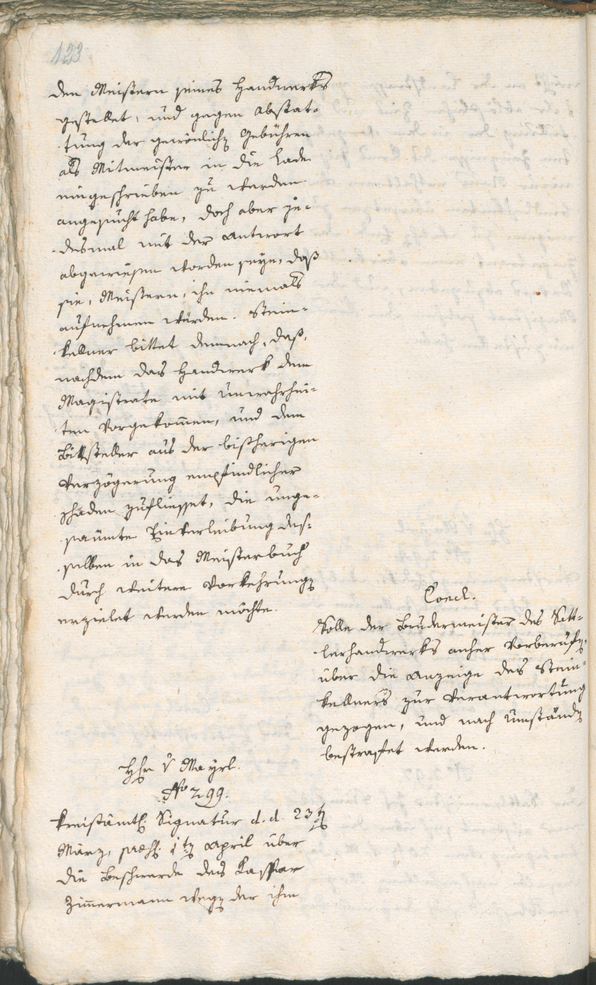 123.
den Meistern seines Handwerks
gestellet, und gegen Abstat-
tung der gewönlich Gebühren
als Mitmeister in die Lade
eingeschrieben zu werden
angesucht habe, doch aber je-
desmal mit der Antwort
abgewiesen worden seye, daß
sie, Meistern, ihn niemals
aufnehmen würden. Stein-
kellner bittet demnach, daß,
nachdem das Handwerk dem
Magistrate mit Unwahrhei-
ten vorgekommen, und dem
Bittsteller aus der bisherigen
Verzögerung empfindlicher
Schaden zufliesset, die unge-
säumte Einverleibung des-
selben in das Meisterbuch
durch weitere Vorkehrung
erzielet werden möchte.
Concl:
Solle der Brudermeister des Satt-
lerhandwerks anher vorberufen,
über die Anzeige des Stein-
kellners zur Verantwortung
gezogen, und nach Umständ
bestrafet werden.
Hr. v Mayrl.
No 299.
Kreisämtl Signatur d. d. 23t
März, 1t April über
die Beschwerde des Kaspar
Zimmermann weg der ihm